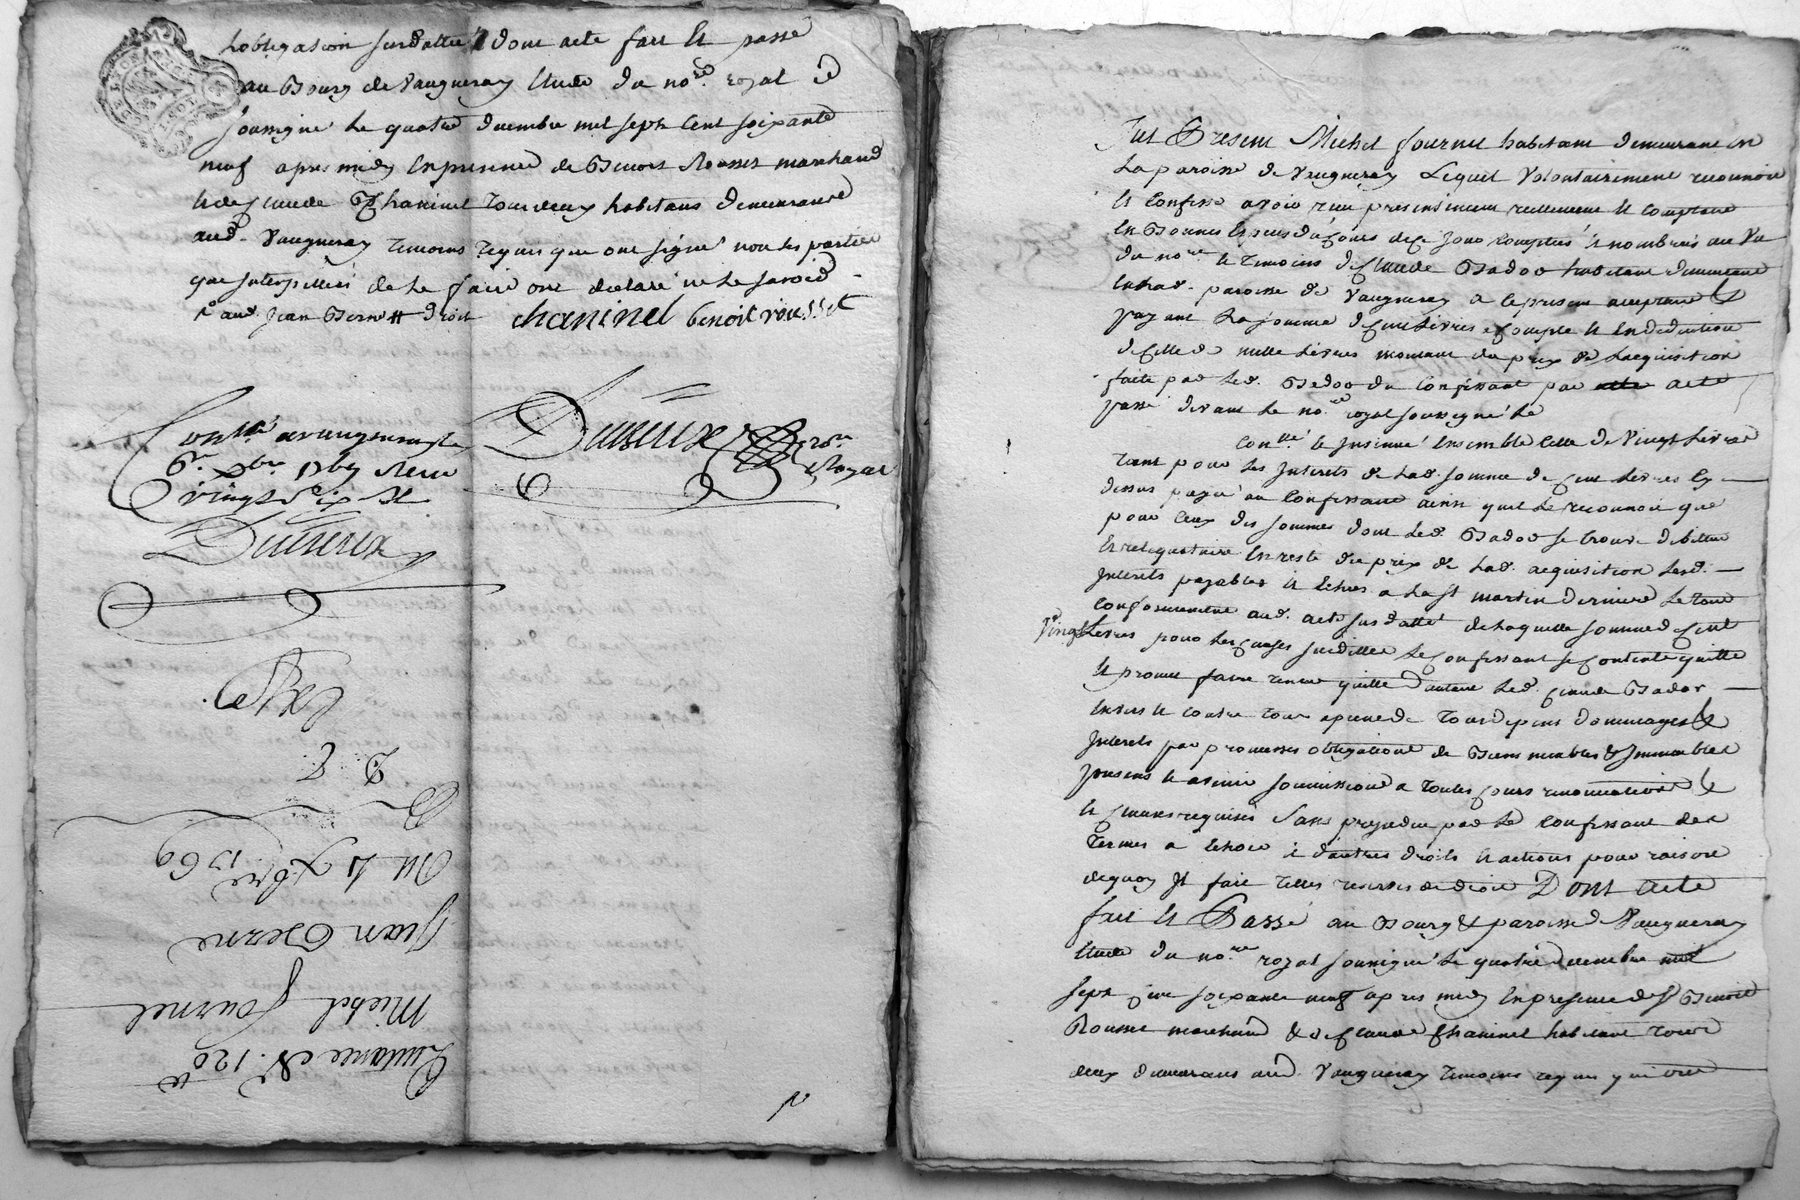 Lobligation susdatteé dont acte fait et passé
au Bourg de Vaugneray Etude du no.re royal
soussigné le quatre decembre mil sept cent soixante
neuf apres midy en presence de Benoit Rousset marchand
et de Claude Chaninel Tous deux habitans demeurans
aud. Vaugneray temoins requis que ont signé non les parties
que interpellés de le faire ont declaré ne le savoir
aud. Jean Berne droit chaninel benoit rousset
Con.lé a vaugneray le
Xbre 1769 Recu
vingt six
Duvieux no.re Royal
Duvieux
Exp.
Du 4 Xbre 1769
Jean Berne
Michel fournel
Quittance de 120 #
Fut Present Michel fournel habitant demeurant en
La paroisse de Vaugneray Lequel Volontairement reconnoit
et Confesse avoir recu presentement reellement et comptant
en Bonnes Especes du cours de ce jour comptées et nombrées au Vu
du no.re et temoins de Claude Badoo habitant demeurant
en lad. paroisse de Vaugneray a ce present acceptant et
payant La somme de Cent Livres a Compte et en deduction
de Celle de mille Livres montant du prix de Lacquisition
faite par led. Badoo du Confessant par acte
passé devant le no.re royal soussigné le
Con.llé et Insinué Ensemble Celle de Vingt Livres
tant pour les Interets de lad. somme de Cent Livres Cy
dessus payée au Confessant ainsi quil le reconnoit que
pour Ceux des sommes dont led. Badoo se trouve debiteur
et reliquataire en reste du prix de lad. acquisition lesd.
Interets payables et Echus a la st martin derniere Le tout
conformement aud. acte susdatté de laquelle somme de Cent
Vingt Livres pour les causes susdittes Le Confessant se Contente quitte
et promet faire tenir quitte dautant led. Claude Badoo
envers et contre tous a peine de tous depens dommages et
Interets par promesses obligations de Biens meubles & Immeubles
presens et avenir soumissions a toutes Cours renonciations et
et Clauses requises Sans prejudice par le Confessant des
Termes a Echoir et d'autres droits et actions pour raison
dequoy Il fait telles reserves de droit Dont acte
fait et Passé au Bourg & paroisse de Vaugneray
Etude du no.re royal soussigné le quatre decembre mil
sept cent soixante neuf apres midy en presence de s.r Benoit
Rousset marchand & de Claude Chaninel habitans tous
deux demeurans aud. Vaugneray temoins requis qui ont